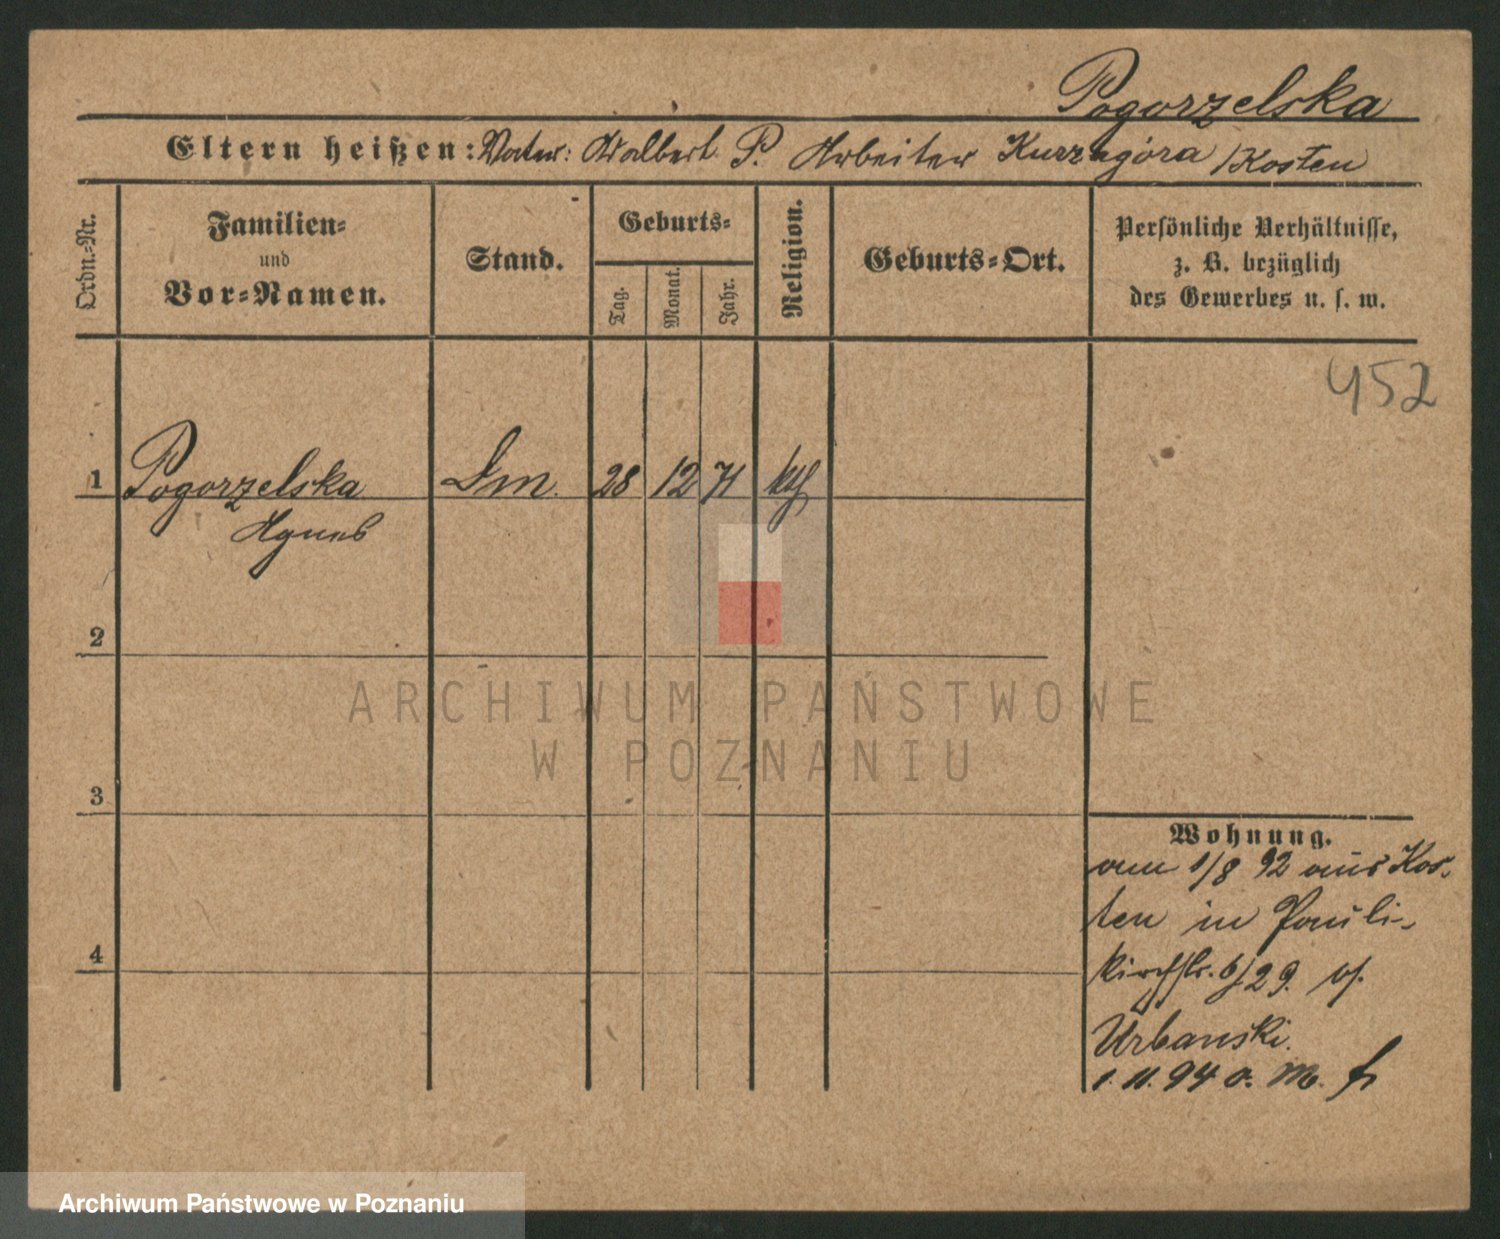 Pogorzelska
Eltern heißen: Vater: Adalbert P. Arbeiter Kurzagóra /Kosten
Ordn.-Nr.
Familien-
und
Vor-Namen.
Stand.
Geburts-
Tag.
Monat.
Jahr.
Religion.
Geburts-Ort.
Persönliche Verhältnisse,
z. B. bezüglich
des Gewerbes u. s. w.
452
1 Pogorzelska Dm. 28 12 71 kth
Agnes
2
ARCHIWUM PAŃSTWOWE
W POZNANIU
3
Wohnung.
am 1/8 92 aus Kos-
ten in Pauli-
4
kirchstr. 6/29.
Urbanski.
1. 11. 94 o. M.
Archiwum Państwowe w Poznaniu